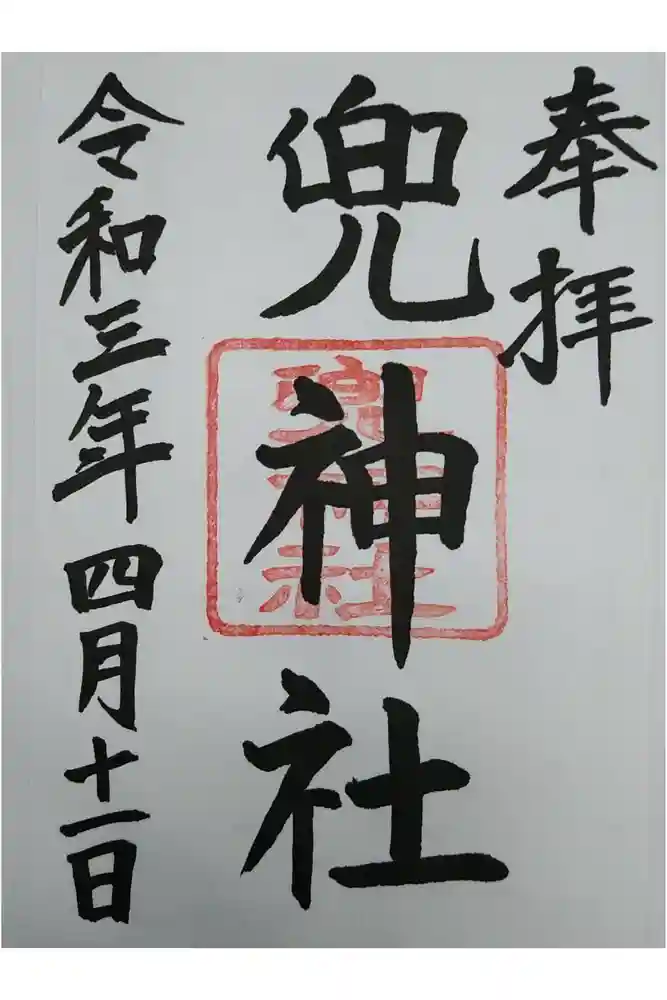 奉拝
兜神社
兜神社
令和三年四月十一日